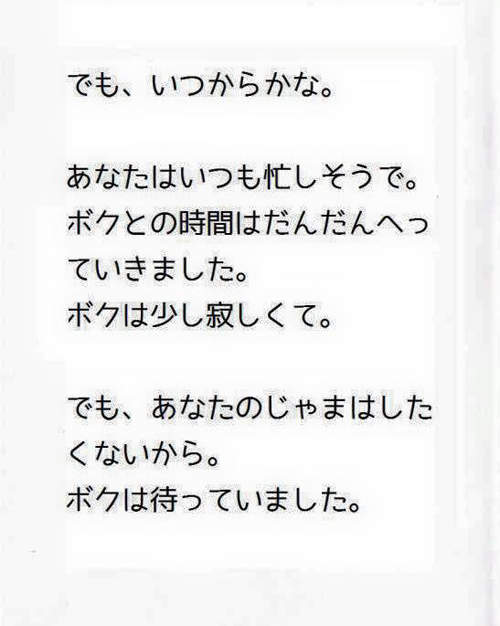 でも、いつからかな。
あなたはいつも忙しそうで。
ボクとの時間はだんだんへっ
ていきました。
ボクは少し寂しくて。
でも、あなたのじゃまはした
くないから。
ボクは待っていました。